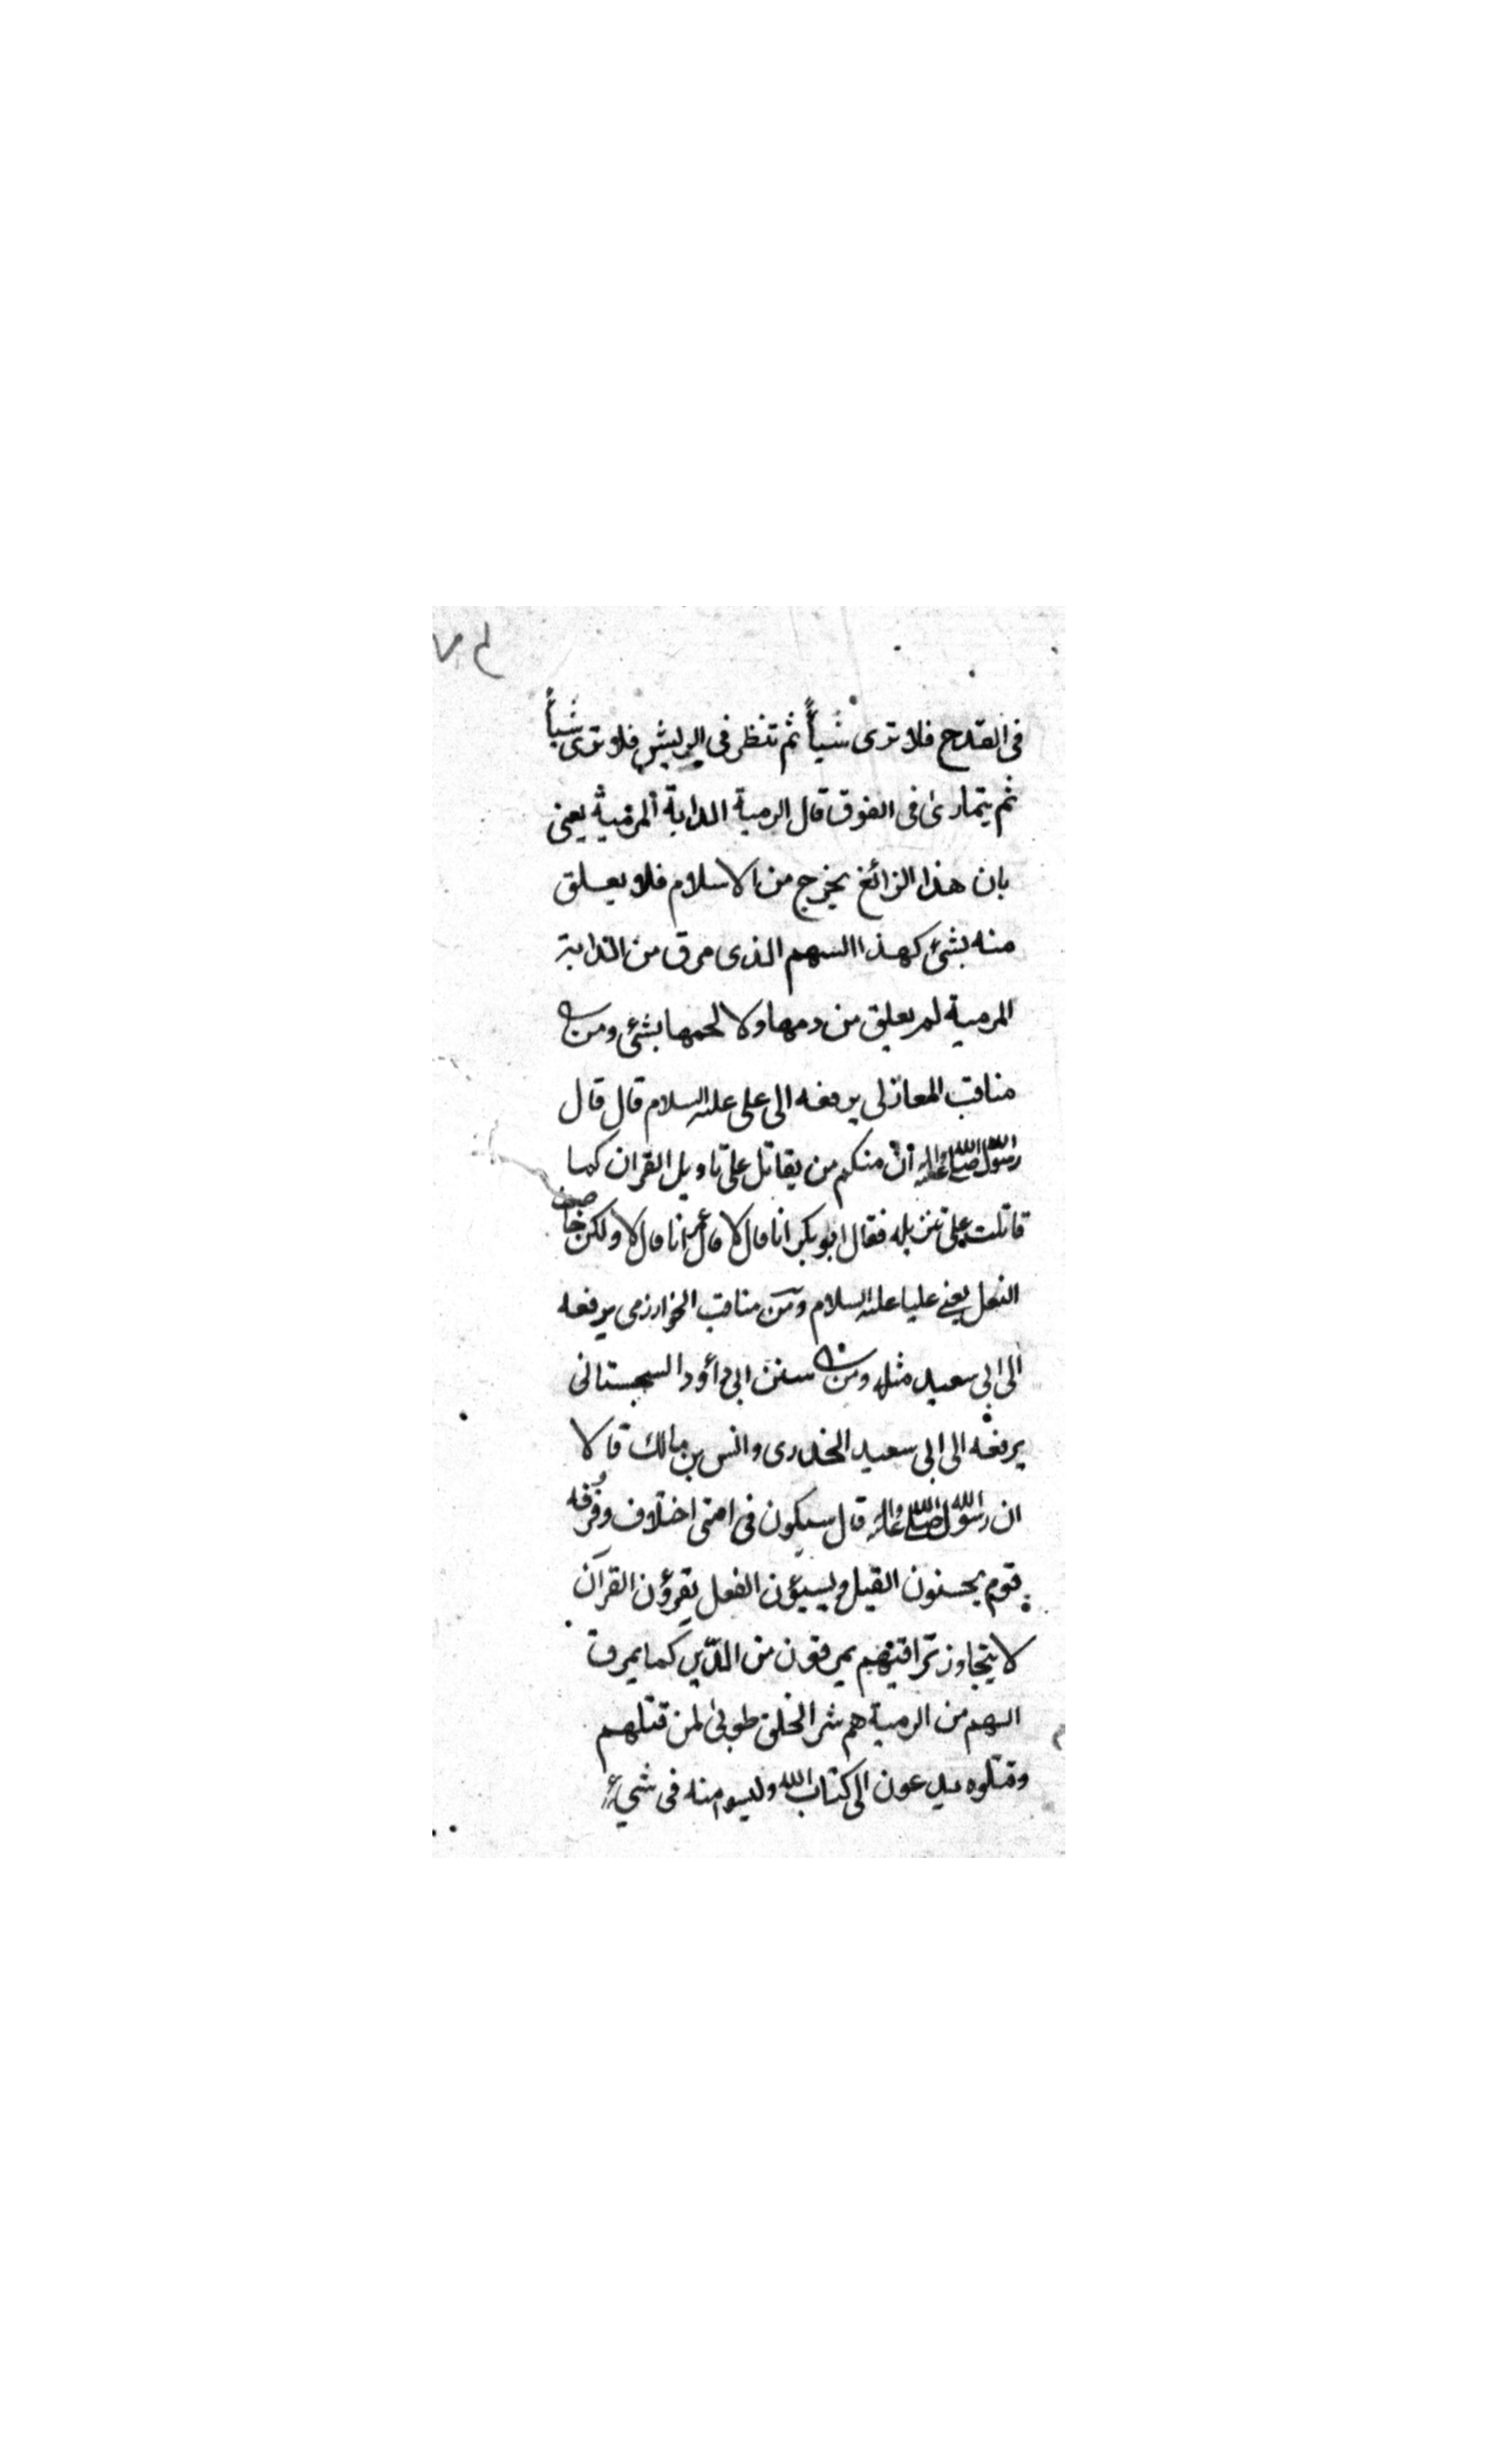 في القدح فلا ترى شيأً ثم تنظر في الريش فلا ترى شيأً
ثم يتمارى في الفوق قال الرمية الدابة المرمية يعنى
بان هذا الزائغ يخرج من الاسلام فلا يعلق
منه بشئ كهذا السهم الذى مرق من الدابة
المرمية لم يعلق من دمها ولا لحمها بشئ ومن
مناقب المغازلى يرفعه الى على عليه السلام قال قال
رسول الله صلى الله عليه وآله ان منكم من يقاتل على تاويل القران كما
قاتلت على تنزيله فقال ابو بكر انا قال لا قال عمر انا قال لا ولكن خاصف
النعل يعنى عليا عليه السلام ومن مناقب الخوارزمى يرفعه
الى ابى سعيد مثله ومن سنن ابى داؤد السجستانى
يرفعه الى ابى سعيد الخدرى وانس بن مالك قالا
ان رسول الله صلى الله عليه وآله قال سيكون فى امتى اختلاف وفرقه
قوم يحسنون القيل ويسيؤن الفعل يقرؤن القرآن
لا يتجاوز تراقيهم يمرقون من الدّين كما يمرق
السهم من الرمية هم شر الخلق طوبى لمن قتلهم
وقتلوه يدعون الى كتاب الله وليسوا منه فى شيءٍ